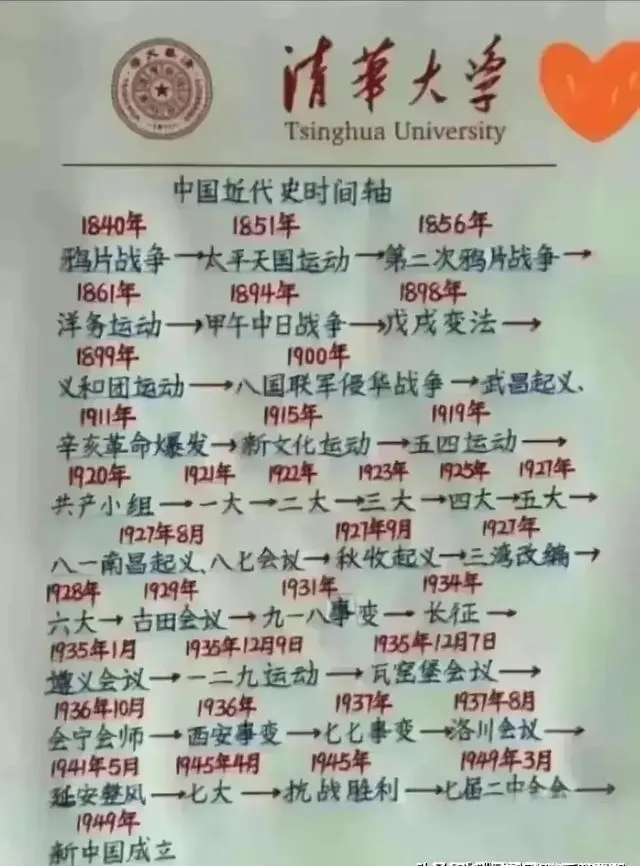 清華大学
Tsinghua University
中国近代史时间轴
1840年 1851年 1856年
鸦片战争→太平天国运动→第二次鸦片战争→
1861年 1894年 1898年
洋务运动→甲午中日战争→戊戌变法→
1899年 1900年
义和团运动→八国联军侵华战争→武昌起义、
1911年 1915年 1919年
辛亥革命爆发→新文化运动→五四运动→
1920年 1921年 1922年 1923年 1925年 1927年
共产小组→一大→二大→三大→四大→五大→
1927年8月 1927年9月 1927年
八一南昌起义、八七会议→秋收起义→三湾改编→
1928年 1929年 1931年 1934年
六大→古田会议→九一八事变→长征→
1935年1月 1935年12月9日 1935年12月7日
遵义会议→一二九运动→瓦窑堡会议→
1936年10月 1936年 1937年 1937年8月
会宁会师→西安事变→七七事变→洛川会议→
1941年5月 1945年4月 1945年 1949年3月
延安整风→七大→抗战胜利→七届二中全会→
1949年
新中国成立